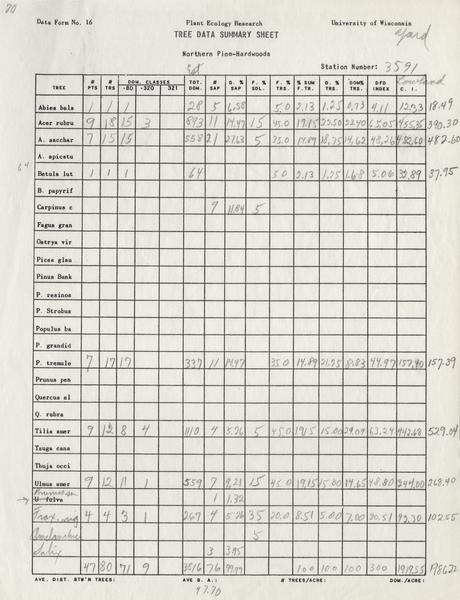 20
Data Form No. 16 Plant Ecology Research University of Wisconsin
TREE DATA SUMMARY SHEET
Yard
Northern Pinn-Hardwoods
Station Number: 3591
TREE # PTS # TRS DOM. CLASSES -80 -320 321 TOT. DOM # SAP D. % SAP F. % SDL. F. % TRS. % SUM F.TR. D. % TRS. DOM% TRS. DFD INDEX C. I.
Abies bals 1 1 1 28 5 6.58 5.0 2.13 1.25 0.73 4.11 12.33 18.49
Acer rubru 9 18 15 3 893 11 14.47 15 45.0 19.15 22.50 23.40 65.05 455.35 390.30
A. sacchar 7 15 15 558 21 27.63 5 35.0 14.89 18.75 14.62 48.26 482.60 482.60
A. spicatu
64
Betula lut 1 1 1 64 5.0 2.13 1.25 1.68 5.06 32.89 37.95
B. papyrif
Carpinus c 9 11.84 5
Fagus gran
Ostrya vir
Picea glau
Pinus Bank
P. resinos
P. Strobus
Populus ba
P. grandid
P. tremulo 7 17 17 337 11 14.47 35.0 14.89 21.25 8.83 44.97 157.40 157.39
Prunus pen
Quercus el
Q. rubra
Tilia amer 9 12 8 4 1110 4 5.26 5 45.0 19.15 15.00 29.09 63.24 442.68 529.04
Tsuga cana
Thuja occi
Ulmus amer 9 12 11 1 559 7 9.21 15 45.0 19.15 15.00 14.65 48.80 244.00 268.40
U fulva 1 1.32
Frax nig 4 4 3 1 267 4 5.26 35 20.0 8.51 5.00 7.00 20.51 92.30 102.55
Amelanchier 5
Salix 3 3.95
47 80 71 9 3516 76 99.99 100 100 100 300 1919.55
AVE. DIST. BTW'N TREES: AVE B. A.: # TREES/ACRE: DOM./ACRE:
47.70